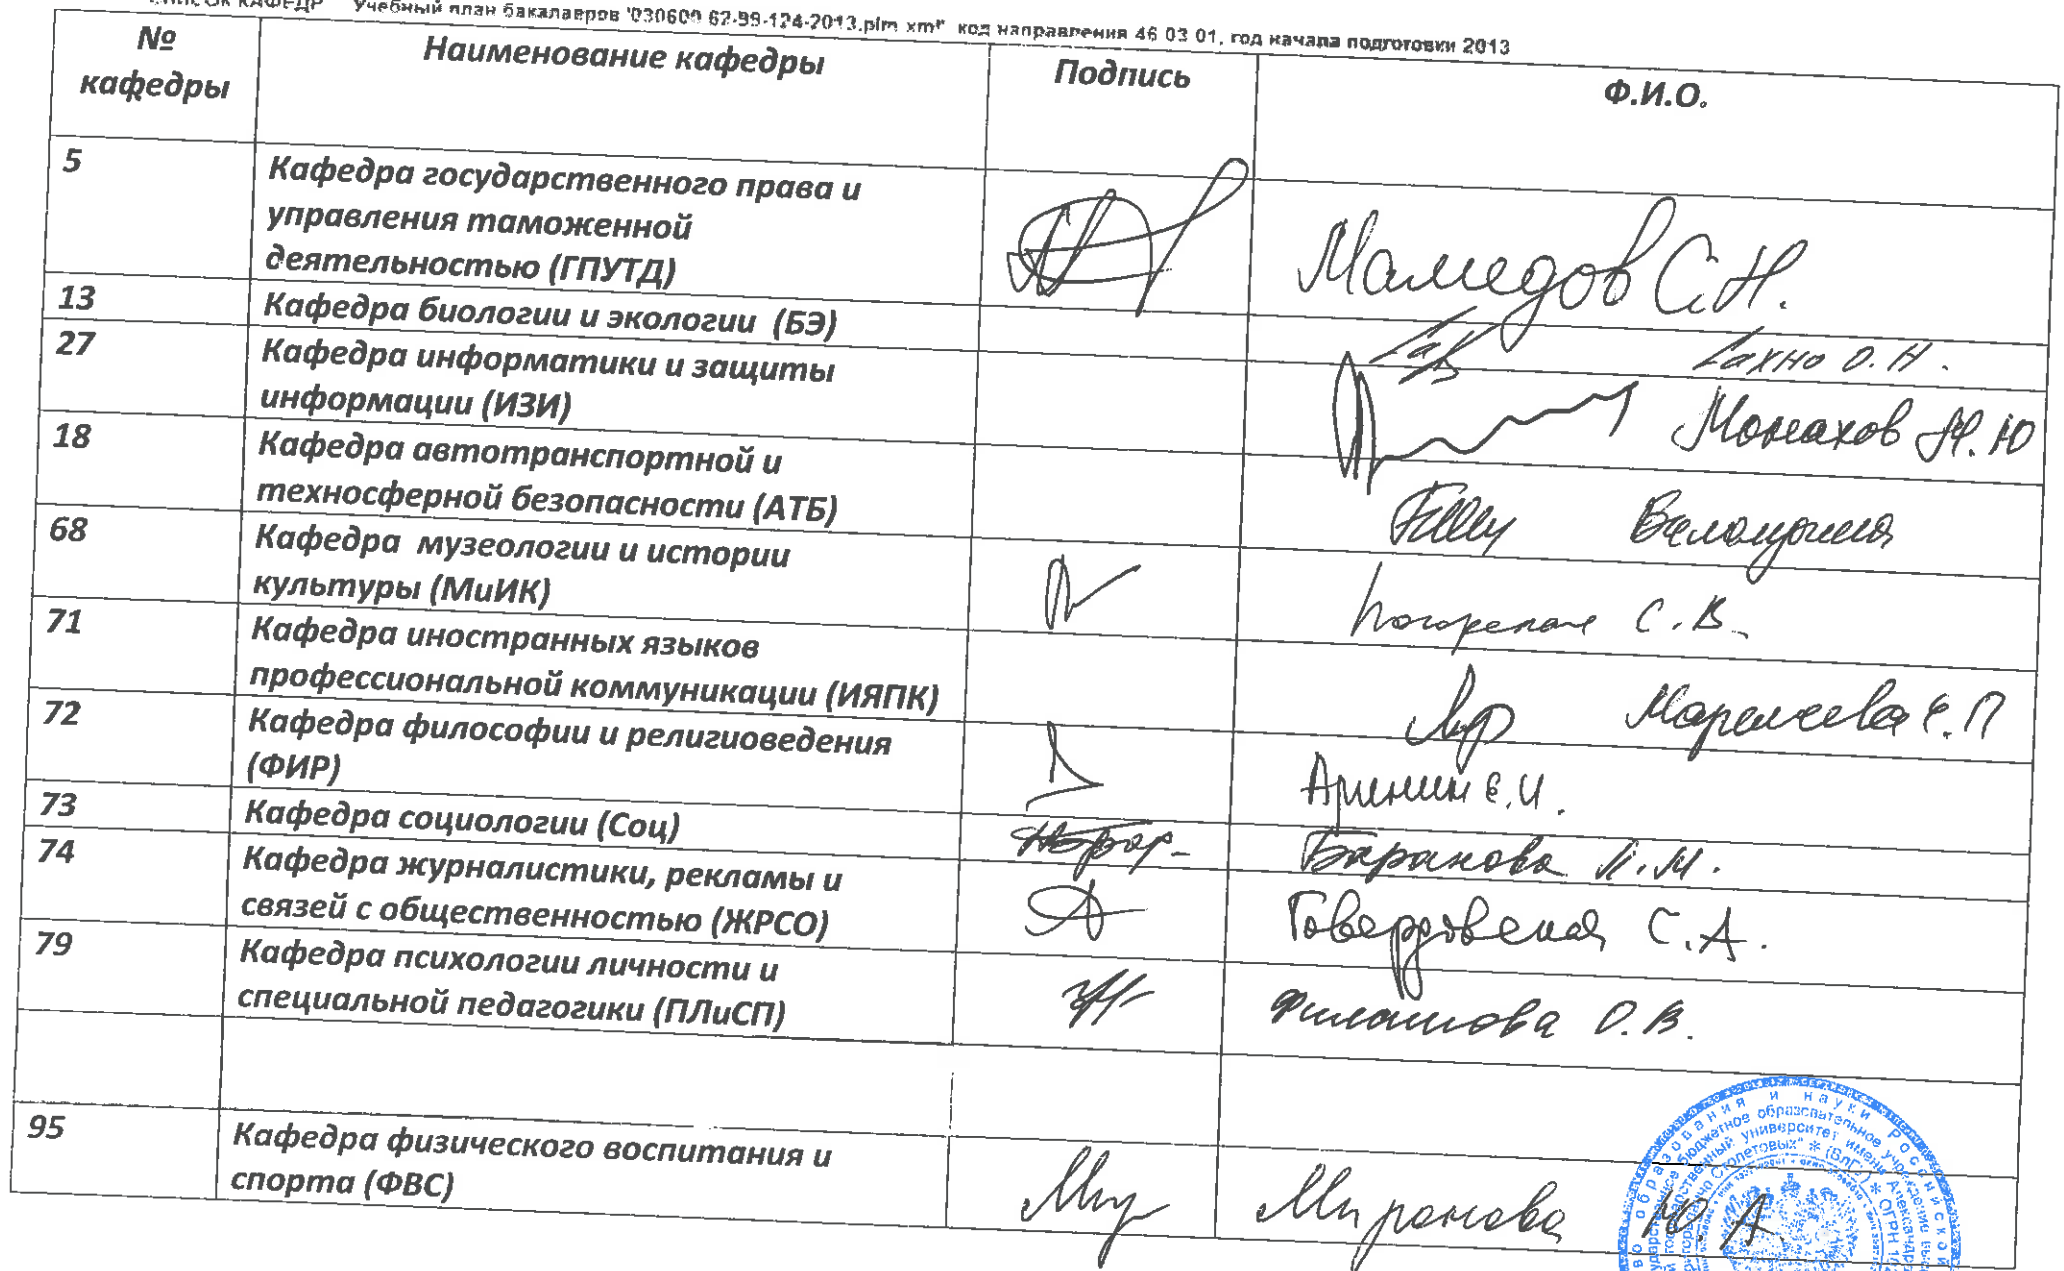 СПИСОК КАФЕДР Учебный план бакалавров '030600 62-99-124-2013.plm.xml' код направления 46 03 01, год начала подготовки 2013
№ кафедры Наименование кафедры Подпись Ф.И.О.
5 Кафедра государственного права и
управления таможенной
деятельностью (ГПУТД) Мамедов С.Н.
13 Кафедра биологии и экологии (БЭ) Сахно О.Н.
27 Кафедра информатики и защиты
информации (ИЗИ) Монахов М.Ю
18 Кафедра автотранспортной и
техносферной безопасности (АТБ)
68 Кафедра музеологии и истории
культуры (МиИК) С.В.
71 Кафедра иностранных языков
профессиональной коммуникации (ИЯПК) Марычева Е.П
72 Кафедра философии и религиоведения
(ФИР) Аринин Е.И.
73 Кафедра социологии (Соц) Баранова
74 Кафедра журналистики, рекламы и
связей с общественностью (ЖРСО) С.А.
79 Кафедра психологии личности и
специальной педагогики (ПЛиСП) Филатова О.В.
95 Кафедра физического воспитания и
спорта (ФВС) Миронова Ю.А.